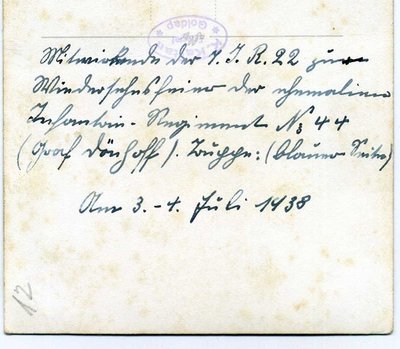 Goldap
Mitwirkende der 7. I. R. 22 zur
Wiedersehnsfeier der ehemaligen
Infantrie-Regiment № 44
(Graf Dönhoff). Truppe: (blauer Seite)
Am 3.-4. Juli 1938
12